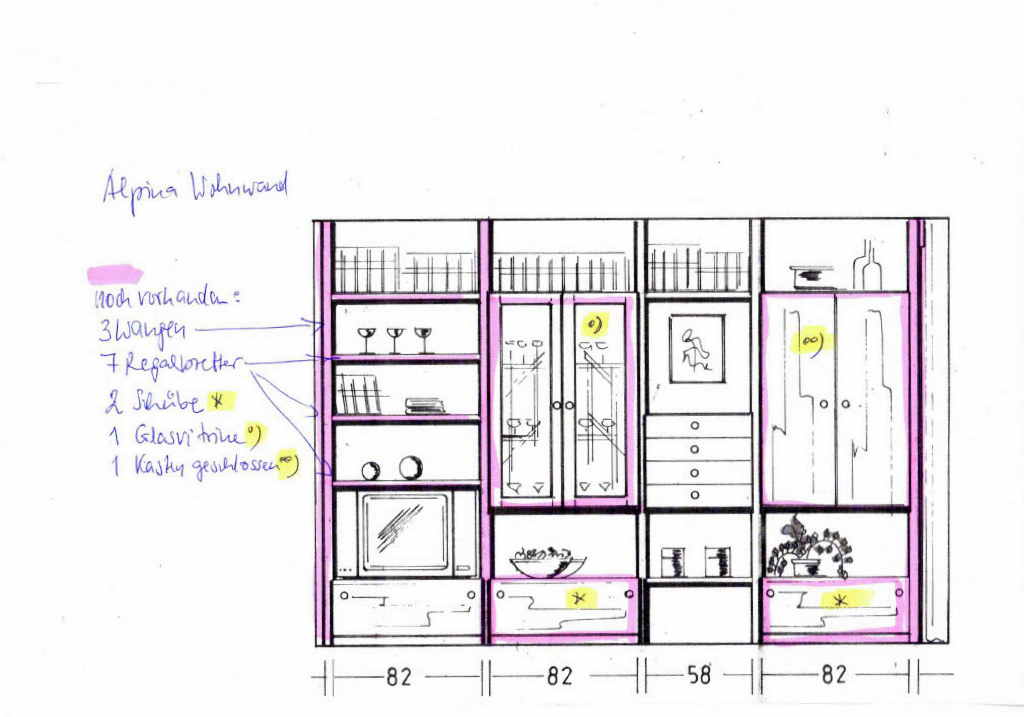 Alpina Wohnwand
noch vorhanden:
3 Wangen
7 Regalbretter
2 Schübe *
1 Glasvitrine °)
1 Kasten geschlossen °°)
°)
°°)
*
*
82
82
58
82